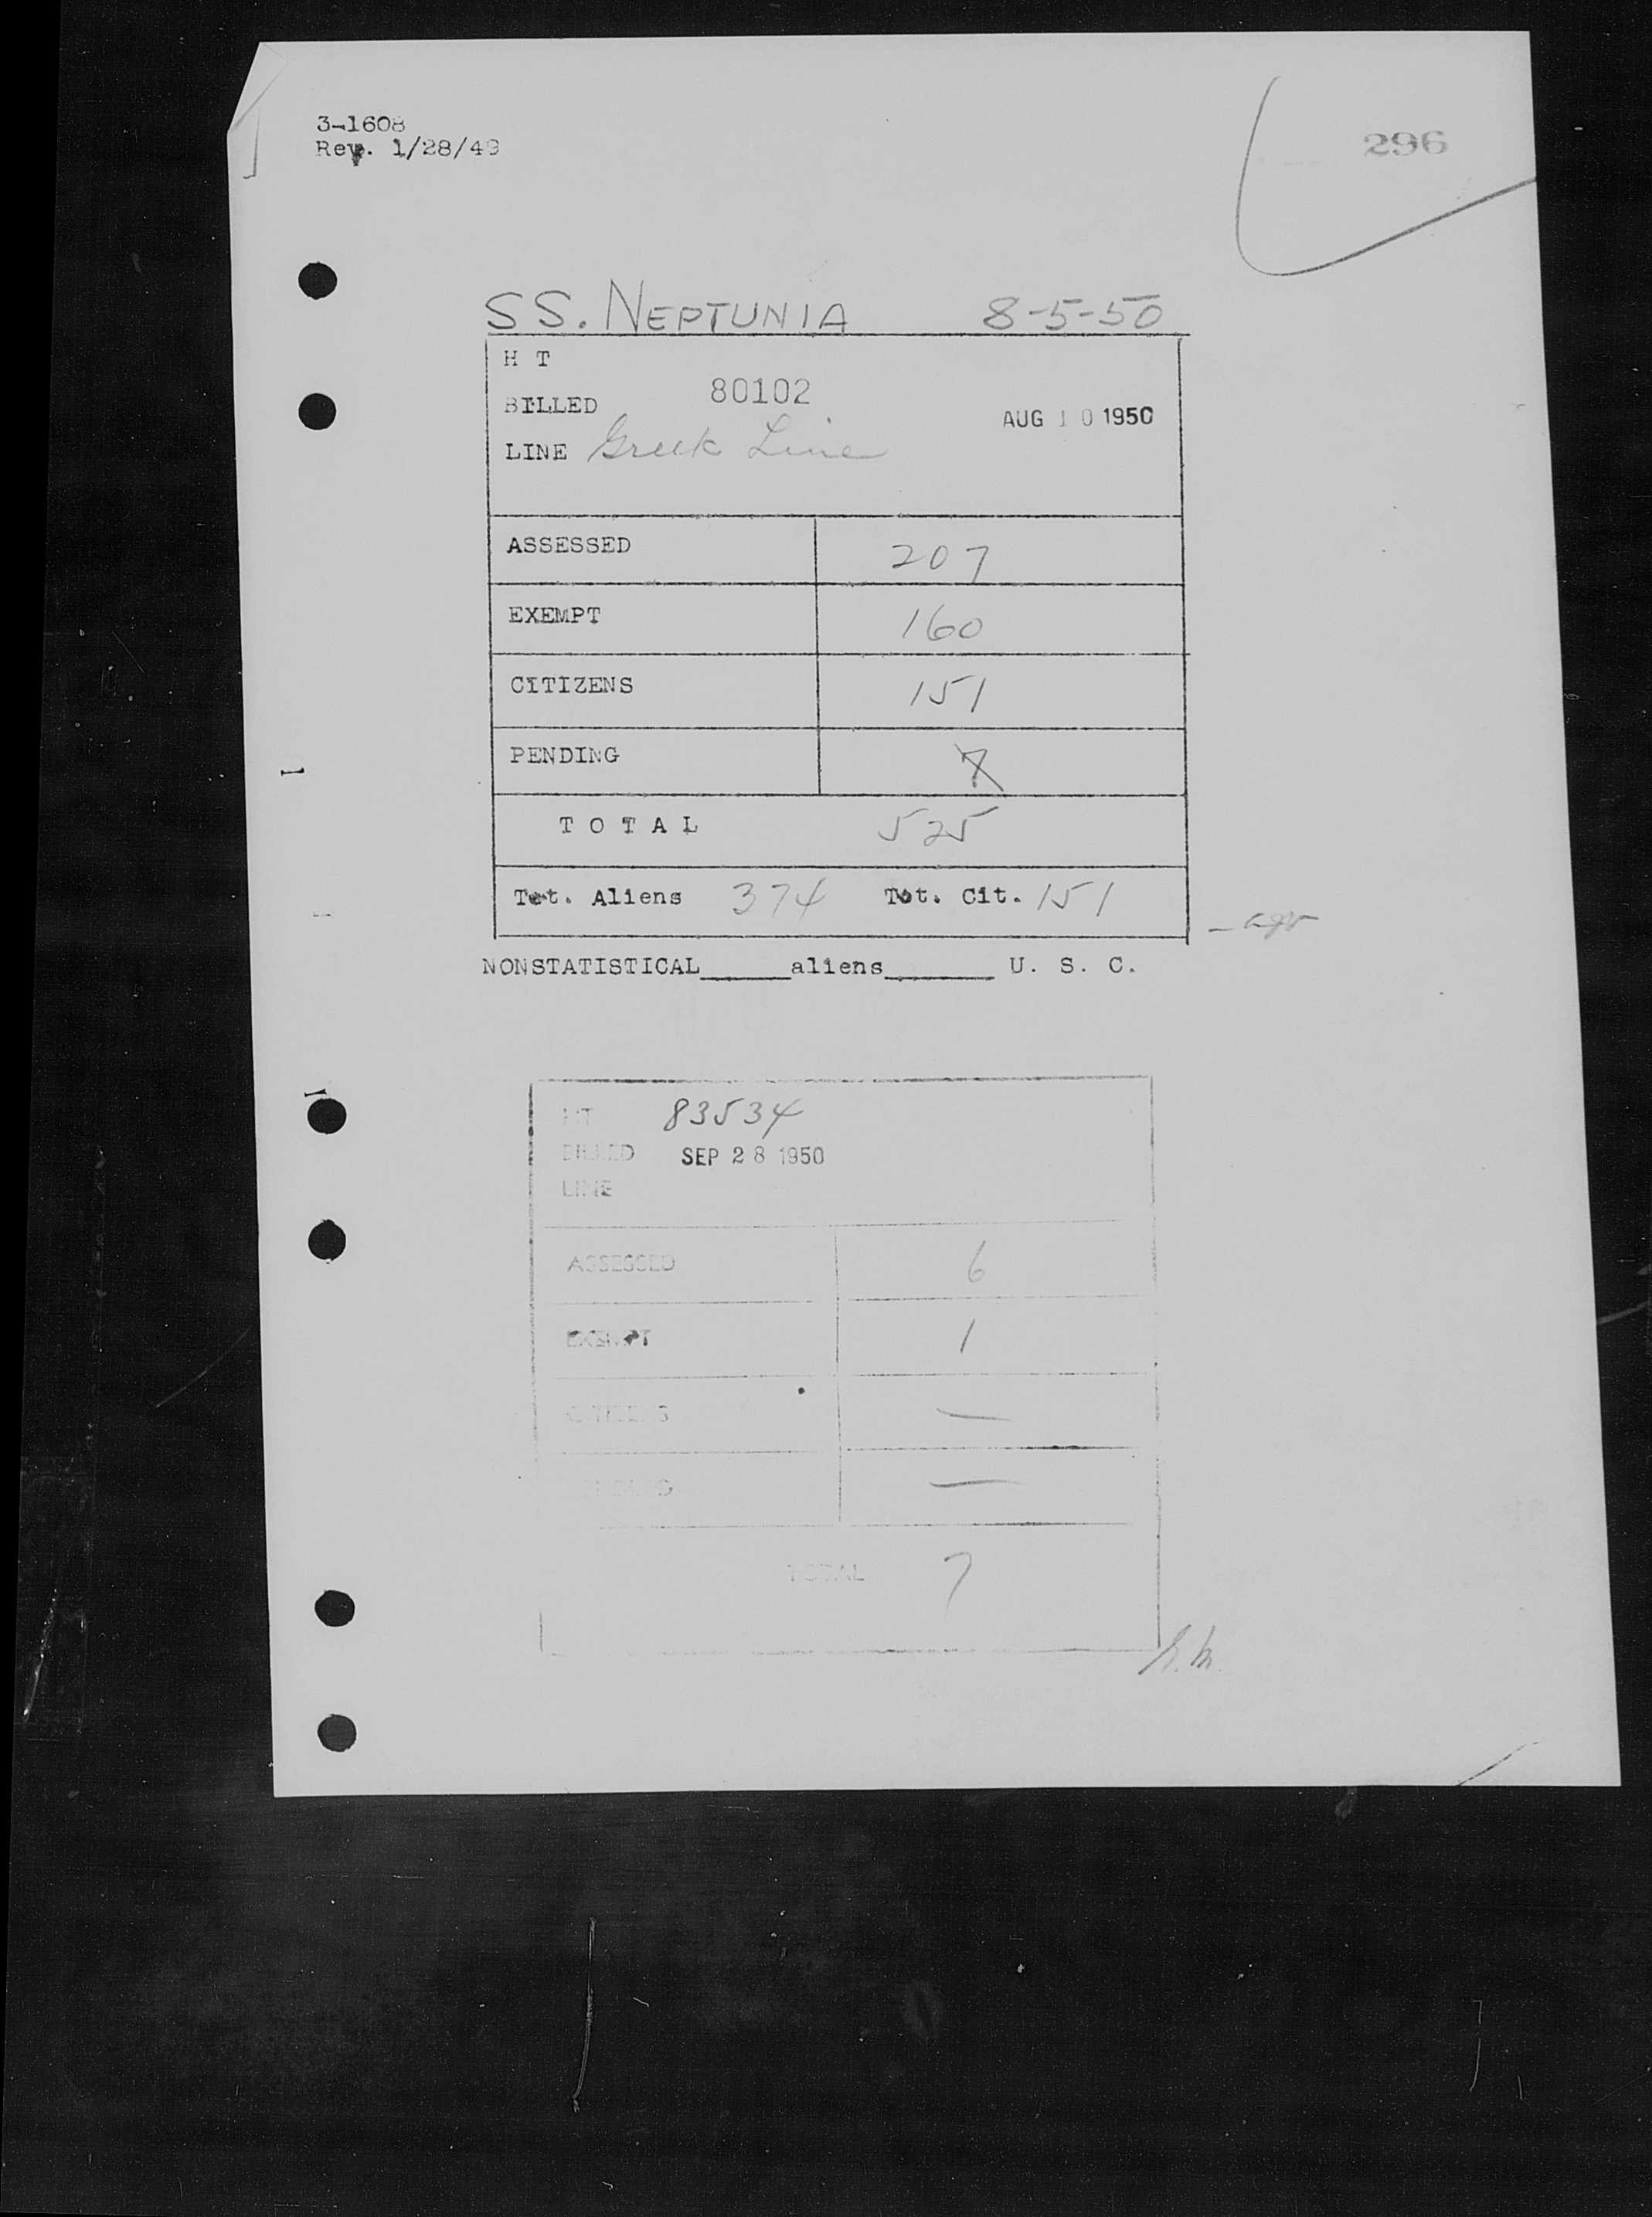 3-1608
Rev. 1/28/49
296
SS. NEPTUNIA 8-5-50
H T
80102
BILLED AUG 10 1950
LINE Greek Line
ASSESSED 207
EXEMPT 160
CITIZENS 151
PENDING 7
T O T A L 525
Tot. Aliens 374 Tot. Cit. 151
NONSTATISTICAL______aliens_______ U. S. C.
HT 83534
BILLED SEP 28 1950
LINE
ASSESSED 6
EXEMPT 1
CITIZENS —
PENDING —
TOTAL 7